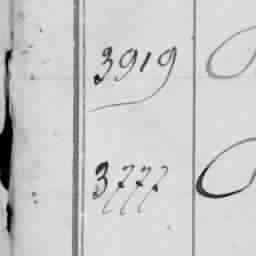 3919
3777